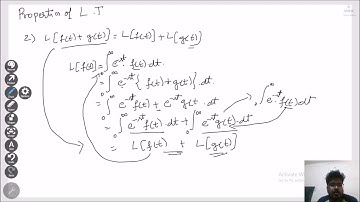 Properties of L.T
2) L[f(t)+g(t)] = L[f(t)] + L[g(t)]
L[f(t)] = ∫₀^∞ e^-st f(t) dt
= ∫₀^∞ e^-st { f(t) + g(t) } . dt
= ∫₀^∞ e^-st f(t) + e^-st g(t) . dt
∫₀^∞ e^-st f(t) dt
= ∫₀^∞ e^-st f(t) . dt + ∫₀^∞ e^-st g(t) . dt
= L[f(t)] + L[g(t)]
Activate